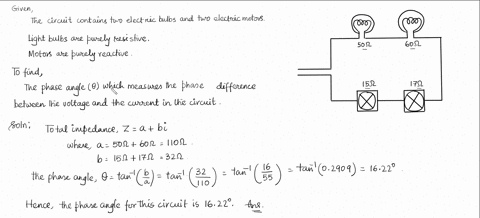 Given,
The circuit contains two electric bulbs and two electric motors.
Light bulbs are purely resistive.
Motors are purely reactive.
To find,
The phase angle (θ) which measures the phase difference
between the voltage and the current in the circuit.
Soln:
Total impedance, Z = a + bi
where, a = 50Ω + 60Ω = 110Ω
b = 15Ω + 17Ω = 32Ω
the phase angle, θ = tan⁻¹(b/a) = tan⁻¹(32/110) = tan⁻¹(16/55) = tan⁻¹(0.2909) = 16.22°
Hence, the phase angle for this circuit is 16.22°. Ans.
50Ω 60Ω
15Ω 17Ω